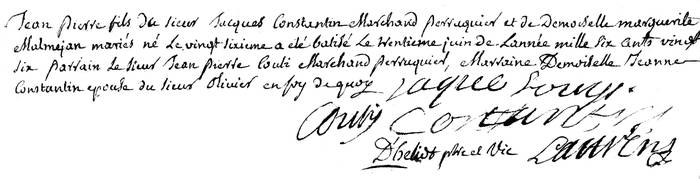 Jean Pierre fils du sieur Jacques Constantin Marchand Perruquier et de Demoiselle marguerite
Malmejan mariés né Le vingt sixieme a elé batisé Le trentieme juin de Lannée mille six cents vingt
six Parrain Le sieur Jean Pierre Couti Marchand Perruquier, Marraine Demoiselle Jeanne
Constantin epouse du sieur Olivier en foy de quoy
Constantin
D'heliot ptre et Vic Laurens